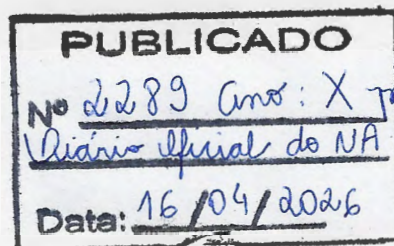 PUBLICADO
Nº 2289 Ano: X
Diário Oficial do NA
Data: 16/04/2026